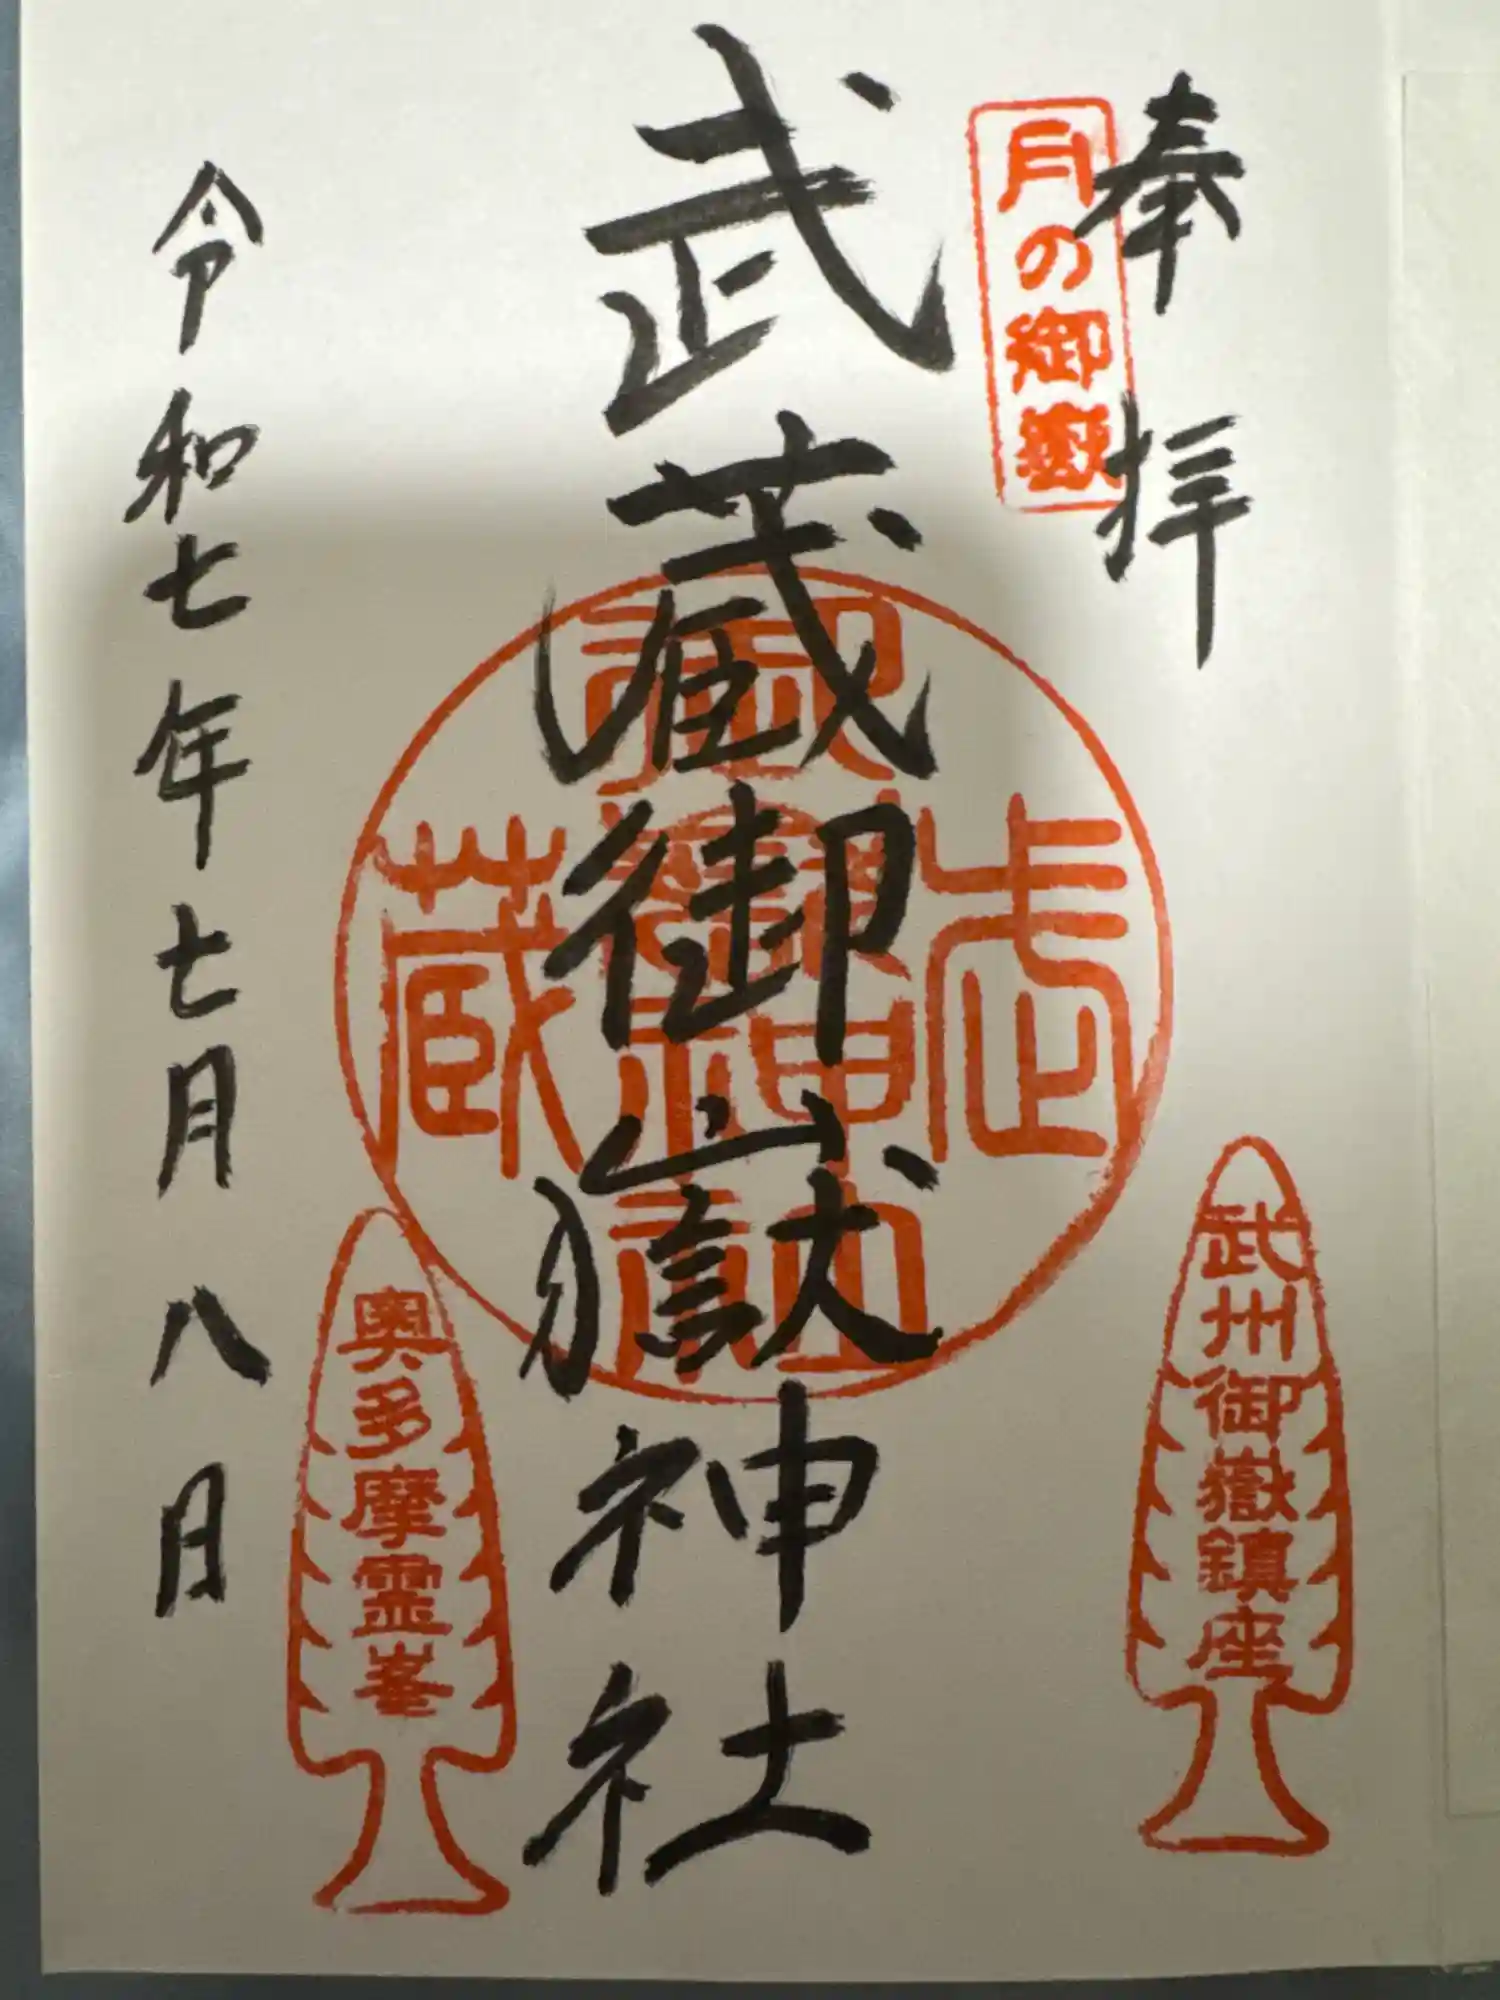 奉拝
月の御嶽
武州御嶽鎮座
武蔵御嶽神社
武
蔵
御
奥多摩霊峯
令和七年七月八日